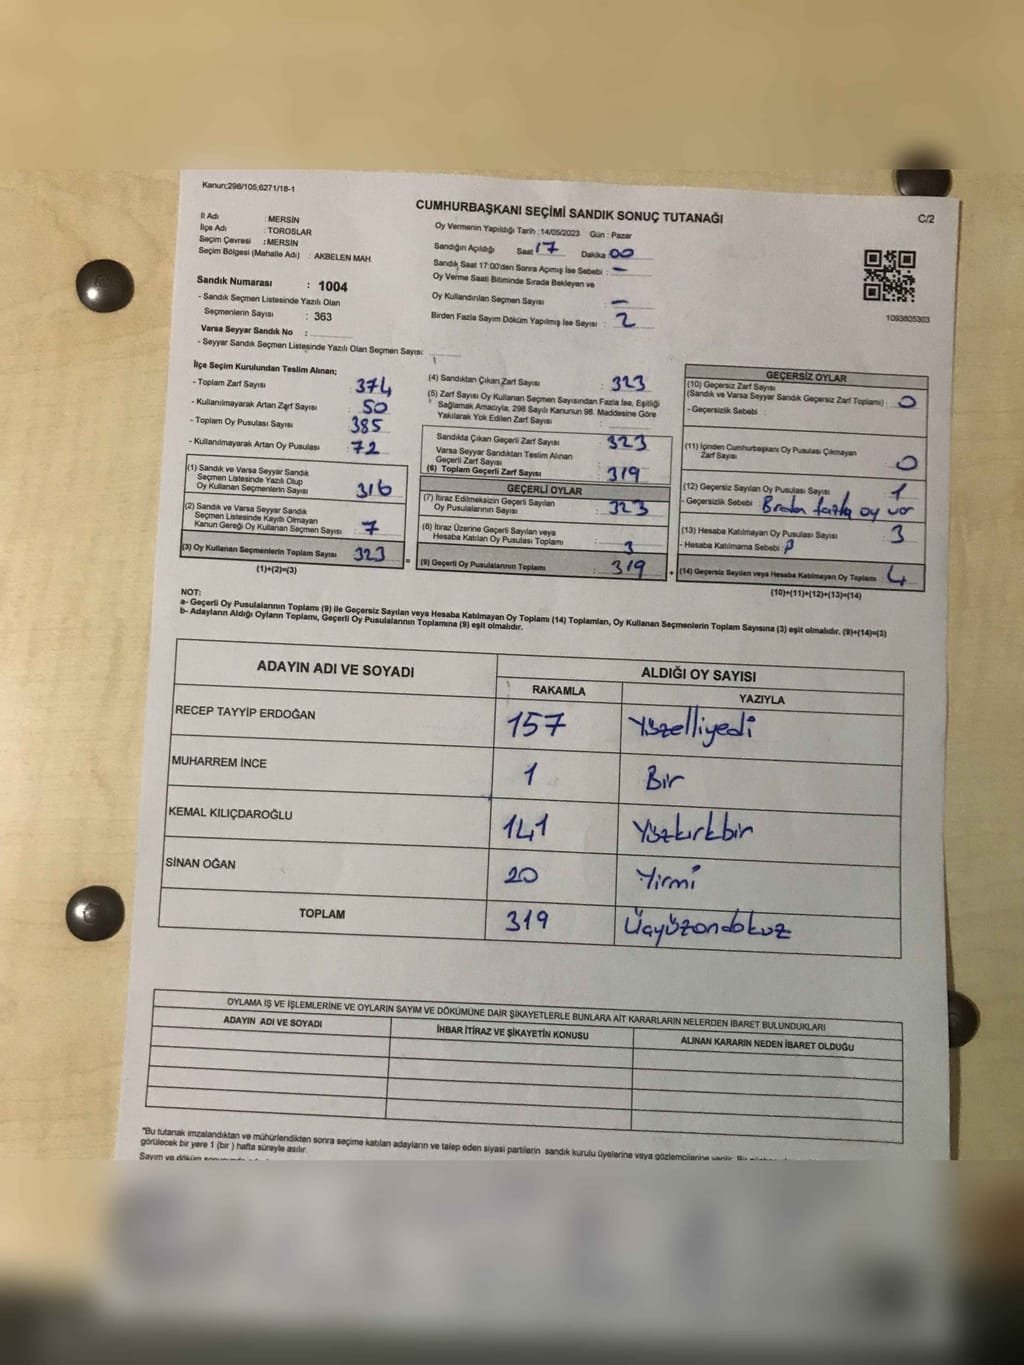 Kanun;298/105;6271/18-1
CUMHURBAŞKANI SEÇİMİ SANDIK SONUÇ TUTANAĞI
C/2
İl Adı : MERSİN
İlçe Adı : TOROSLAR
Seçim Çevresi : MERSİN
Seçim Bölgesi (Mahalle Adı) : AKBELEN MAH.
Oy Vermenin Yapıldığı Tarih :14/05/2023 Gün : Pazar
Sandığın Açıldığı Saat 17 Dakika 00
Sandık Saat 17:00'den Sonra Açımış İse Sebebi : -
Oy Verme Saati Bitiminde Sırada Bekleyen ve
Oy Kullandırılan Seçmen Sayısı -
Birden Fazla Sayım Döküm Yapılmış İse Sayısı : 2
1093805303
Sandık Numarası : 1004
- Sandık Seçmen Listesinde Yazılı Olan
Seçmenlerin Sayısı : 363
Varsa Seyyar Sandık No :
- Seyyar Sandık Seçmen Listesinde Yazılı Olan Seçmen Sayısı:
İlçe Seçim Kurulundan Teslim Alınan;
- Toplam Zarf Sayısı : 374
- Kullanılmayarak Artan Zarf Sayısı : 50
- Toplam Oy Pusulası Sayısı : 385
- Kullanılmayarak Artan Oy Pusulası : 72
(1) Sandık ve Varsa Seyyar Sandık
Seçmen Listesinde Yazılı Olup
Oy Kullanan Seçmenlerin Sayısı : 316
(2) Sandık ve Varsa Seyyar Sandık
Seçmen Listesinde Kayıtlı Olmayan
Kanun Gereği Oy Kullanan Seçmen Sayısı : 7
(3) Oy Kullanan Seçmenlerin Toplam Sayısı 323
(1)+(2)=(3)
(4) Sandıktan Çıkan Zarf Sayısı : 323
(5) Zarf Sayısı Oy Kullanan Seçmen Sayısından Fazla İse, Eşitliği
Sağlamak Amacıyla; 298 Sayılı Kanunun 98. Maddesine Göre
Yakılarak Yok Edilen Zarf Sayısı :
Sandıkta Çıkan Geçerli Zarf Sayısı 323
Varsa Seyyar Sandıktan Teslim Alınan
Geçerli Zarf Sayısı
(6) Toplam Geçerli Zarf Sayısı : 319
GEÇERLİ OYLAR
(7) İtiraz Edilmeksizin Geçerli Sayılan
Oy Pusulalarının Sayısı : 323
(8) İtiraz Üzerine Geçerli Sayılan veya
Hesaba Katılan Oy Pusulası Toplamı : 3
= (9) Geçerli Oy Pusulalarının Toplamı : 319
GEÇERSİZ OYLAR
(10) Geçersiz Zarf Sayısı
(Sandık ve Varsa Seyyar Sandık Geçersiz Zarf Toplamı) : 0
- Geçersizlik Sebebi :
(11) İçinden Cumhurbaşkanı Oy Pusulası Çıkmayan
Zarf Sayısı : 0
(12) Geçersiz Sayılan Oy Pusulası Sayısı : 1
- Geçersizlik Sebebi Birden fazla oy var
(13) Hesaba Katılmayan Oy Pusulası Sayısı : 3
- Hesaba Katılmama Sebebi :
+ (14) Geçersiz Sayılan veya Hesaba Katılmayan Oy Toplamı : 4
(10)+(11)+(12)+(13)=(14)
NOT:
a- Geçerli Oy Pusulalarının Toplamı (9) ile Geçersiz Sayılan veya Hesaba Katılmayan Oy Toplamı (14) Toplamları, Oy Kullanan Seçmenlerin Toplam Sayısına (3) eşit olmalıdır. (9)+(14)=(3)
b- Adayların Aldığı Oyların Toplamı, Geçerli Oy Pusulalarının Toplamına (9) eşit olmalıdır.
ADAYIN ADI VE SOYADI ALDIĞI OY SAYISI
RAKAMLA YAZIYLA
RECEP TAYYİP ERDOĞAN 157 Yüzelliyedi
MUHARREM İNCE 1 Bir
KEMAL KILIÇDAROĞLU 141 Yüzkırkbir
SİNAN OĞAN 20 Yirmi
TOPLAM 319 Üçyüzondokuz
OYLAMA İŞ VE İŞLEMLERİNE VE OYLARIN SAYIM VE DÖKÜMÜNE DAİR ŞİKAYETLERLE BUNLARA AİT KARARLARIN NELERDEN İBARET BULUNDUKLARI
ADAYIN ADI VE SOYADI İHBAR İTİRAZ VE ŞİKAYETİN KONUSU ALINAN KARARIN NEDEN İBARET OLDUĞU
*Bu tutanak imzalandıktan ve mühürlendikten sonra seçime katılan adayların ve talep eden siyasi partilerin sandık kurulu üyelerine veya gözlemcilerine verilir.
görülecek bir yere 1 (bir) hafta süreyle asılır.
Sayım ve döküm